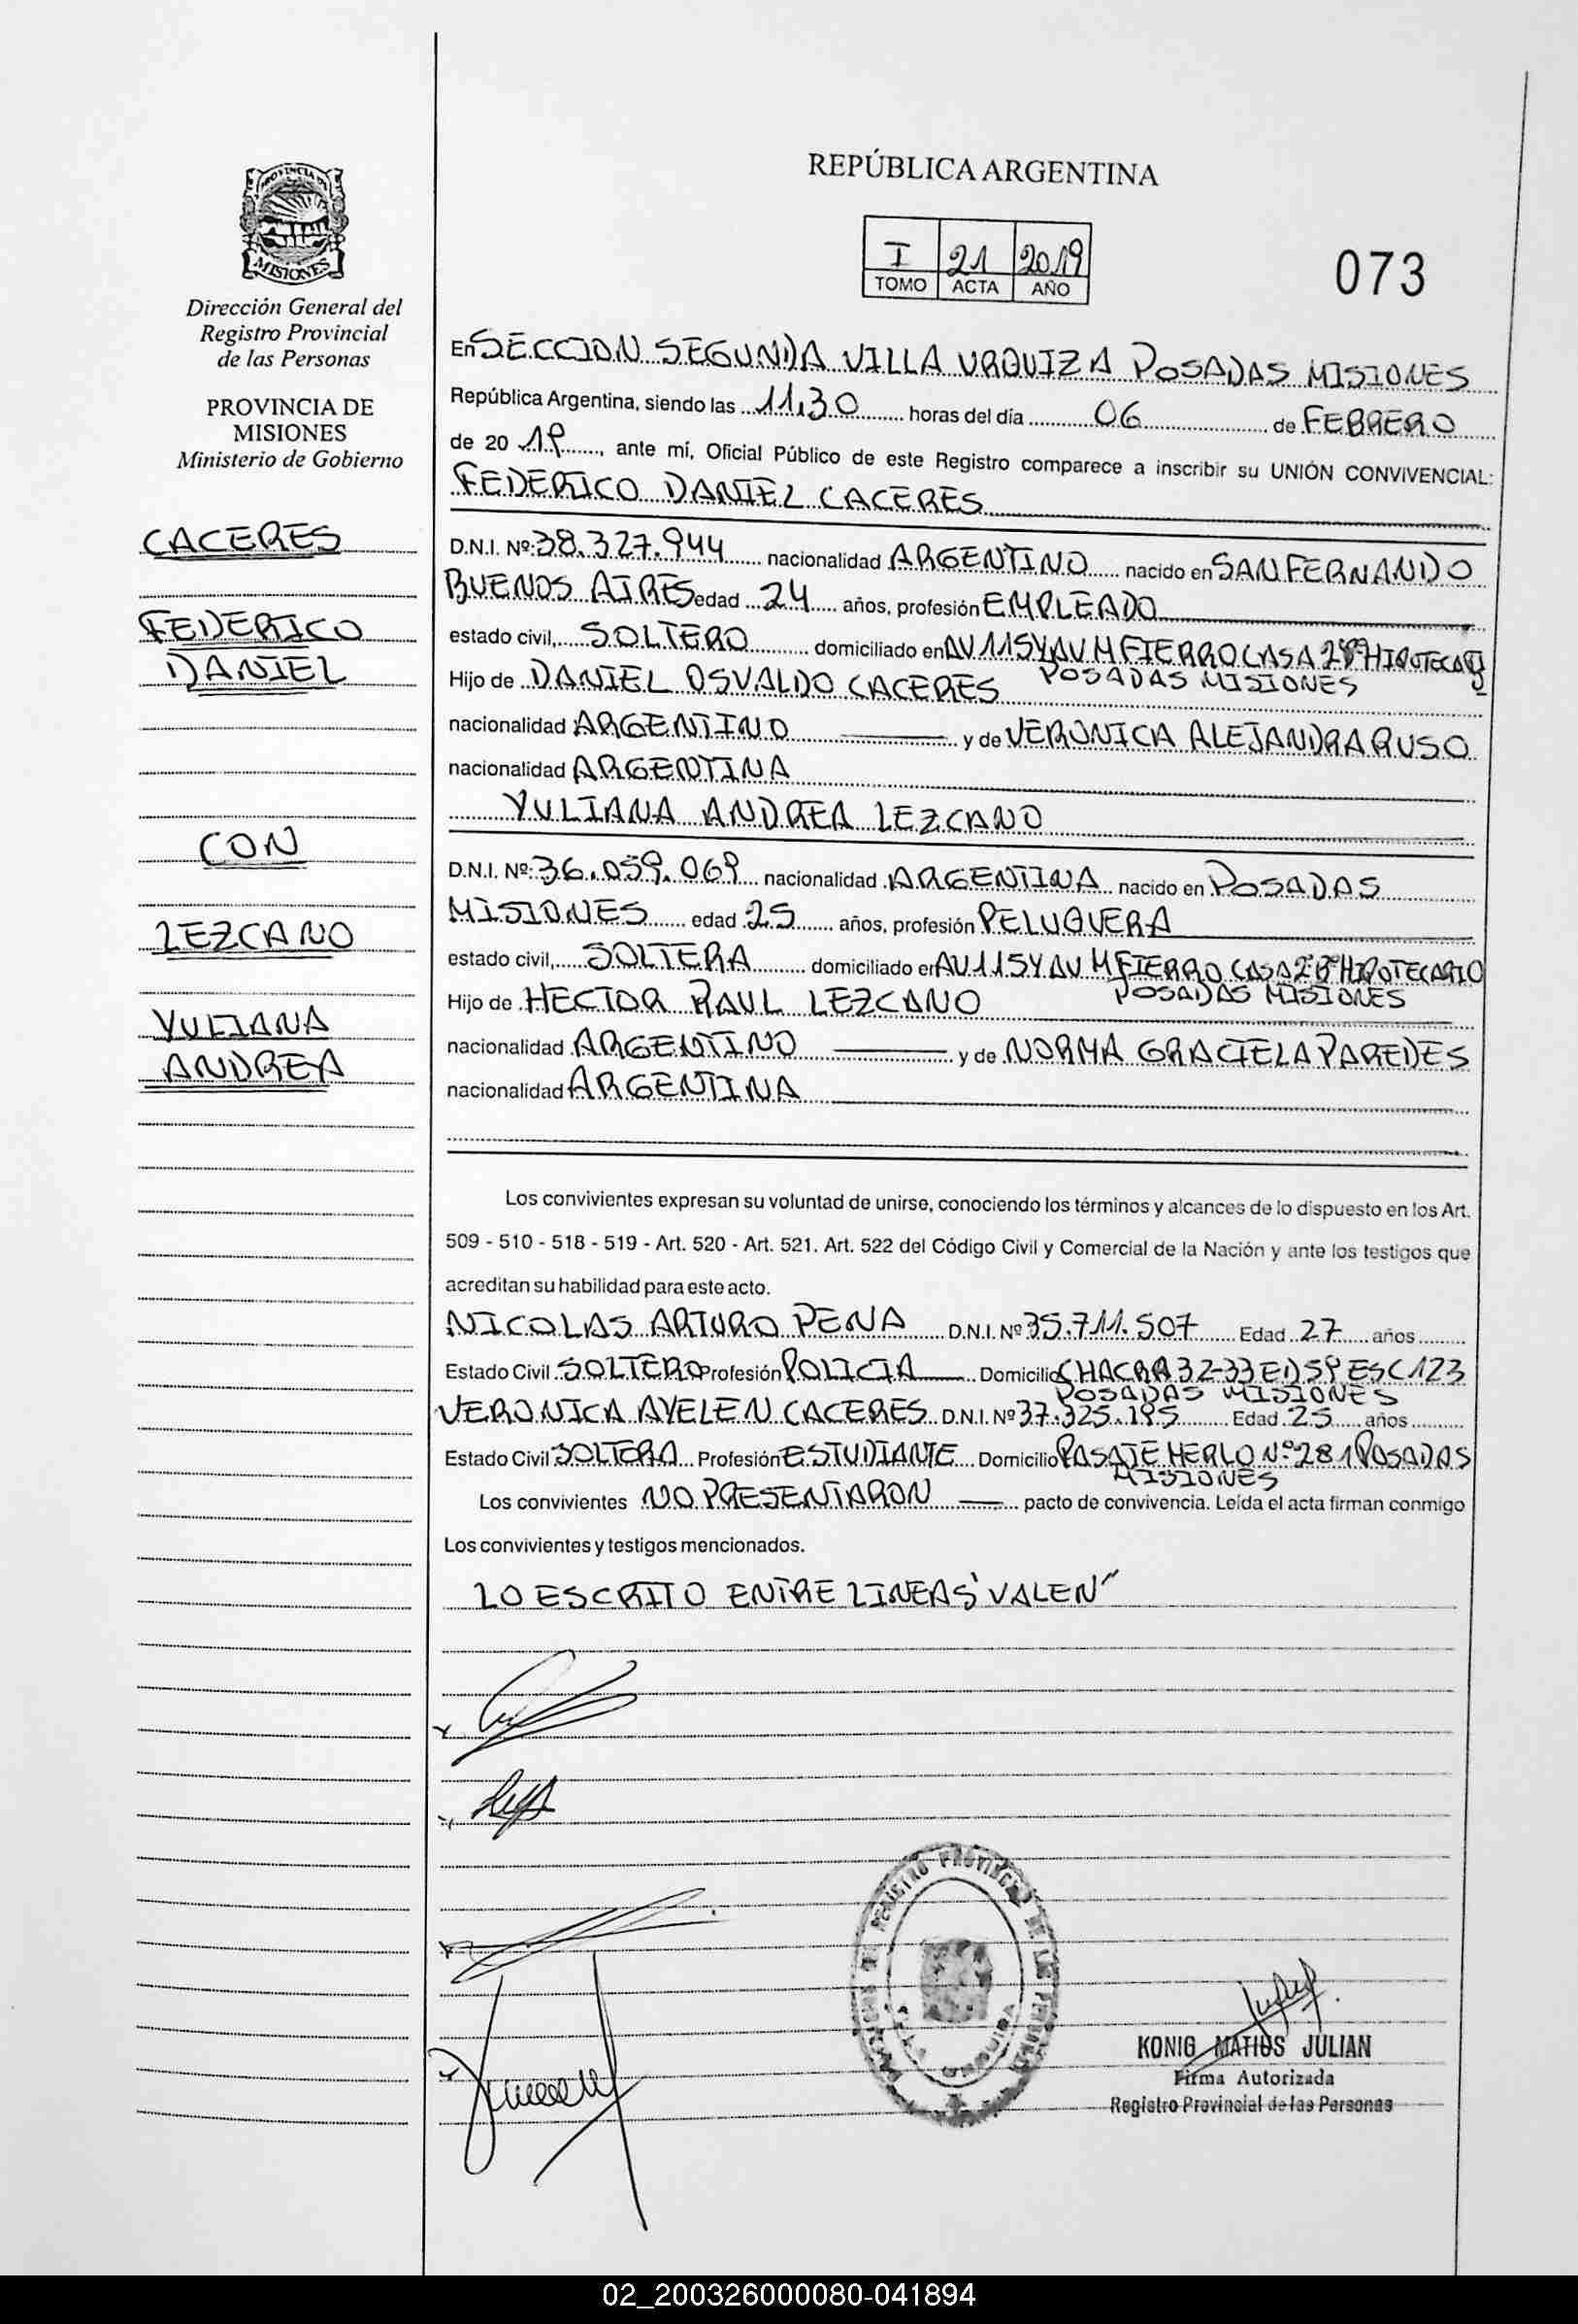 REPÚBLICA ARGENTINA
I 21 2019
TOMO ACTA AÑO
073
PROVINCIA DE
MISIONES
Dirección General del
Registro Provincial
de las Personas
PROVINCIA DE
MISIONES
Ministerio de Gobierno
CACERES
FEDERICO
DANIEL
CON
LEZCANO
YULIANA
ANDREA
En SECCION SEGUNDA VILLA URQUIZA POSADAS MISIONES
República Argentina, siendo las 11,30 horas del día 06 de FEBRERO
de 20 19, ante mí, Oficial Público de este Registro comparece a inscribir su UNIÓN CONVIVENCIAL:
FEDERICO DANIEL CACERES
D.N.I. Nº: 38.327.944 nacionalidad ARGENTINO nacido en SAN FERNANDO
BUENOS AIRES edad 24 años, profesión EMPLEADO
estado civil, SOLTERO domiciliado en AV 115 Y AV M FIERRO CASA
POSADAS MISIONES
Hijo de DANIEL OSVALDO CACERES
nacionalidad ARGENTINO y de VERONICA ALEJANDRA RUSO
nacionalidad ARGENTINA
YULIANA ANDREA LEZCANO
D.N.I. Nº: 36.059.069 nacionalidad ARGENTINA nacido en POSADAS
MISIONES edad 25 años, profesión PELUQUERA
estado civil, SOLTERA domiciliado en AV 115 Y AV M FIERRO CASA HIPOTECARIO
POSADAS MISIONES
Hijo de HECTOR RAUL LEZCANO
nacionalidad ARGENTINO y de NORMA GRACIELA PAREDES
nacionalidad ARGENTINA
Los convivientes expresan su voluntad de unirse, conociendo los términos y alcances de lo dispuesto en los Art.
509 - 510 - 518 - 519 - Art. 520 - Art. 521. Art. 522 del Código Civil y Comercial de la Nación y ante los testigos que
acreditan su habilidad para este acto.
NICOLAS ARTURO PENA D.N.I. Nº 35.711.507 Edad 27 años
Estado Civil SOLTERO Profesión POLICIA Domicilio CHACRA 32-33 ED 59 ESC 123
POSADAS MISIONES
VERONICA AYELEN CACERES D.N.I. Nº 37.325.195 Edad 25 años
Estado Civil SOLTERA Profesión ESTUDIANTE Domicilio PASAJE MERLO Nº 281 POSADAS
MISIONES
Los convivientes NO PRESENTARON pacto de convivencia. Leída el acta firman conmigo
Los convivientes y testigos mencionados.
LO ESCRITO ENTRE LINEAS "VALEN"
KONIG MATIUS JULIAN
Firma Autorizada
Registro Provincial de las Personas
02_200326000080-041894